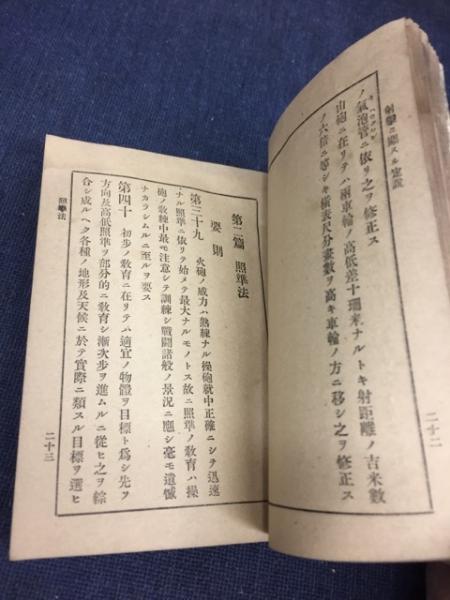 射擊ニ關スル定說
ノ氣泡管ニ依リ之ヲ修正ス
山砲ニ在リテハ兩車輪ノ高低差十珊米ナルトキ射距離ノ吉米數
ノ六倍ニ等シキ橫表尺分畫數ヲ高キ車輪ノ方ニ移シ之ヲ修正ス
二十二
第二篇 照準法
要則
第三十九 火砲ノ威力ハ熟練ナル操砲就中正確ニシテ迅速
ナル照準ニ依リテ始メテ最大ナルモノトス故ニ照準ノ敎育ハ操
砲ノ敎練中最モ注意シテ訓練シ戰鬪諸般ノ景況ニ應シ毫モ遺憾
ナカラシムルニ至ルヲ要ス
第四十 初步ノ敎育ニ在リテハ適宜ノ物體ヲ目標ト爲シ先ツ
方向及高低照準ヲ部分的ニ敎育シ漸次步ヲ進ムルニ從ヒ之ヲ綜
合シ成ルヘク各種ノ地形及天候ニ於テ實際ニ類スル目標ヲ選ヒ
照準法
二十三